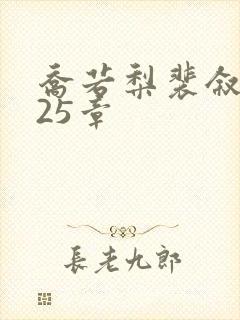 喬若梨裴叙
25章
長老九郎